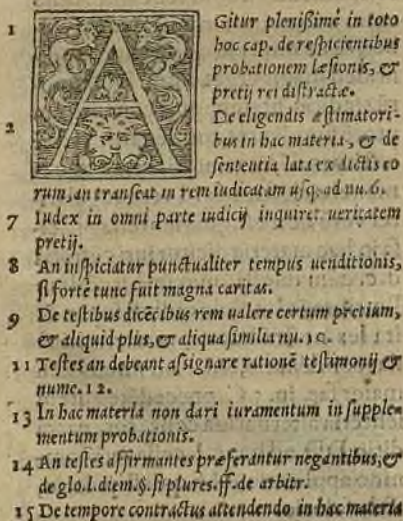 1 AGitur pleniſsimé in toto
hoc cap. de reſpicientibus
probationem læſionis, &
pretij rei diſtractæ.
2 De eligendis æſtimatori-
bus in hac materia, & de
ſententia lata ex dictis eo
rum, an tranſeat in rem iudicatam uſq. ad nu. 6.
7 Iudex in omni parte iudicij inquiret ueritatem
pretij.
8 An inſpiciatur punctualiter tempus uenditionis,
ſi forte tunc fuit magna caritas.
9 De teſtibus dicẽtibus rem ualere certum pretium,
& aliquid plus, & aliqua ſimilia nu. 10.
11 Teſtes an debeant aſsignare rationẽ teſtimonij &
nume. 12.
13 In hac materia non dari iuramentum in ſupple-
mentum probationis.
14 An teſtes affirmantes præferantur negantibus, &
de glo. l. diem. §. ſi plures. ff. de arbitr.
15 De tempore contractus attendendo in hac materia